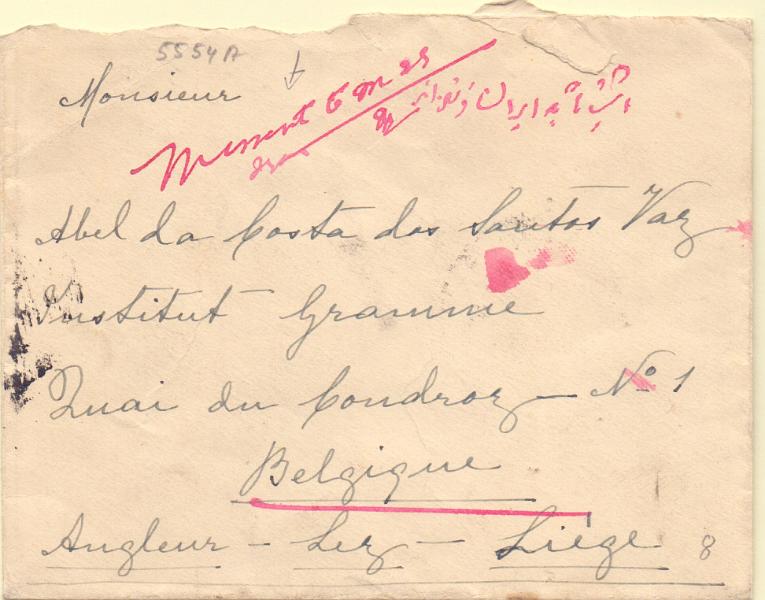 5554A
Monsieur
Abel da Costa dos Santos Vaz
Institut Gramme
Quai du Condroz - Nº 1
Belgique
Angleur - Lez - Liège 8